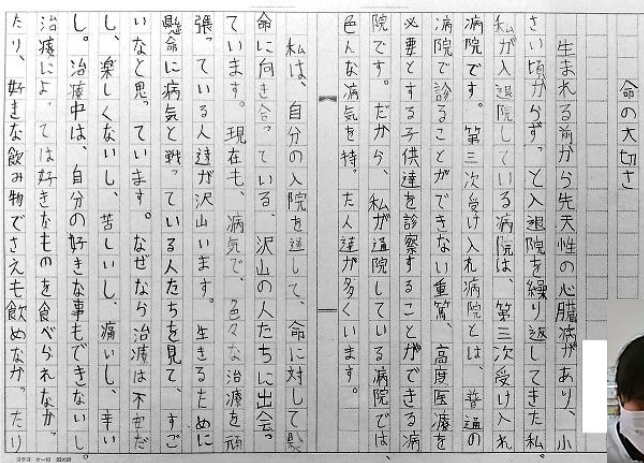 命の大切さ
生まれる前から先天性の心臓病があり、小
さい頃からずっと入退院を繰り返してきた私。
私が入退院している病院は、第三次受け入れ
病院です。第三次受け入れ病院とは、普通の
病院で診ることができない重篤、高度医療を
必要とする子供達を診察することができる病
院です。だから、私が通院している病院では、
色んな病気を持った人達が多くいます。
私は、自分の入院を通して、命に対して懸
命に向き合っている、沢山の人たちに出会っ
ています。現在も、病気で、色々な治療を頑
張っている人達が沢山います。生きるために
懸命に病気と戦っている人たちを見て、すご
いなと思っています。なぜなら治療は不安だ
し、楽しくないし、苦しいし、痛いし、辛い
し。治療中は、自分の好きな事もできないし。
治療によっては好きなものを食べられなかっ
たり、好きな飲み物でさえも飲めなかったり
コクヨ ケー10 20×20